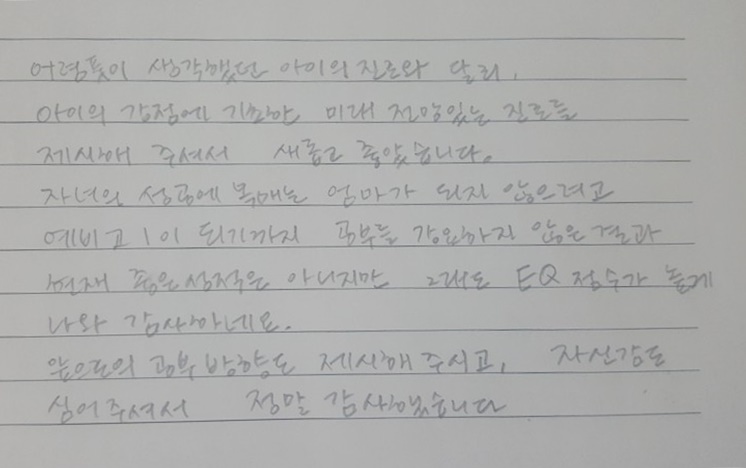 어렴풋이 생각했던 아이의 진로와 달리,
아이의 강점에 기초한 미래 전망있는 진로를
제시해 주셔서 새롭고 좋았습니다.
자녀의 성공에 목매는 엄마가 되지 않으려고
예비고1이 되기까지 공부를 강요하지 않은 결과
현재 좋은성적은 아니지만 그래도 EQ 점수가 높게
나와 감사하네요.
앞으로의 공부방향도 제시해주시고, 자신감도
심어주셔서 정말 감사했습니다